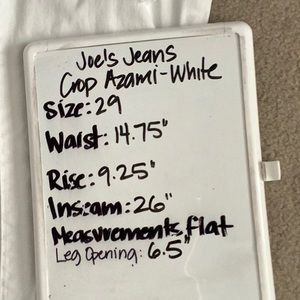 Joe's Jeans
Crop Azami-White
Size: 29
Waist: 14.75"
Rise: 9.25"
Inseam: 26"
Measurements flat
Leg Opening: 6.5"